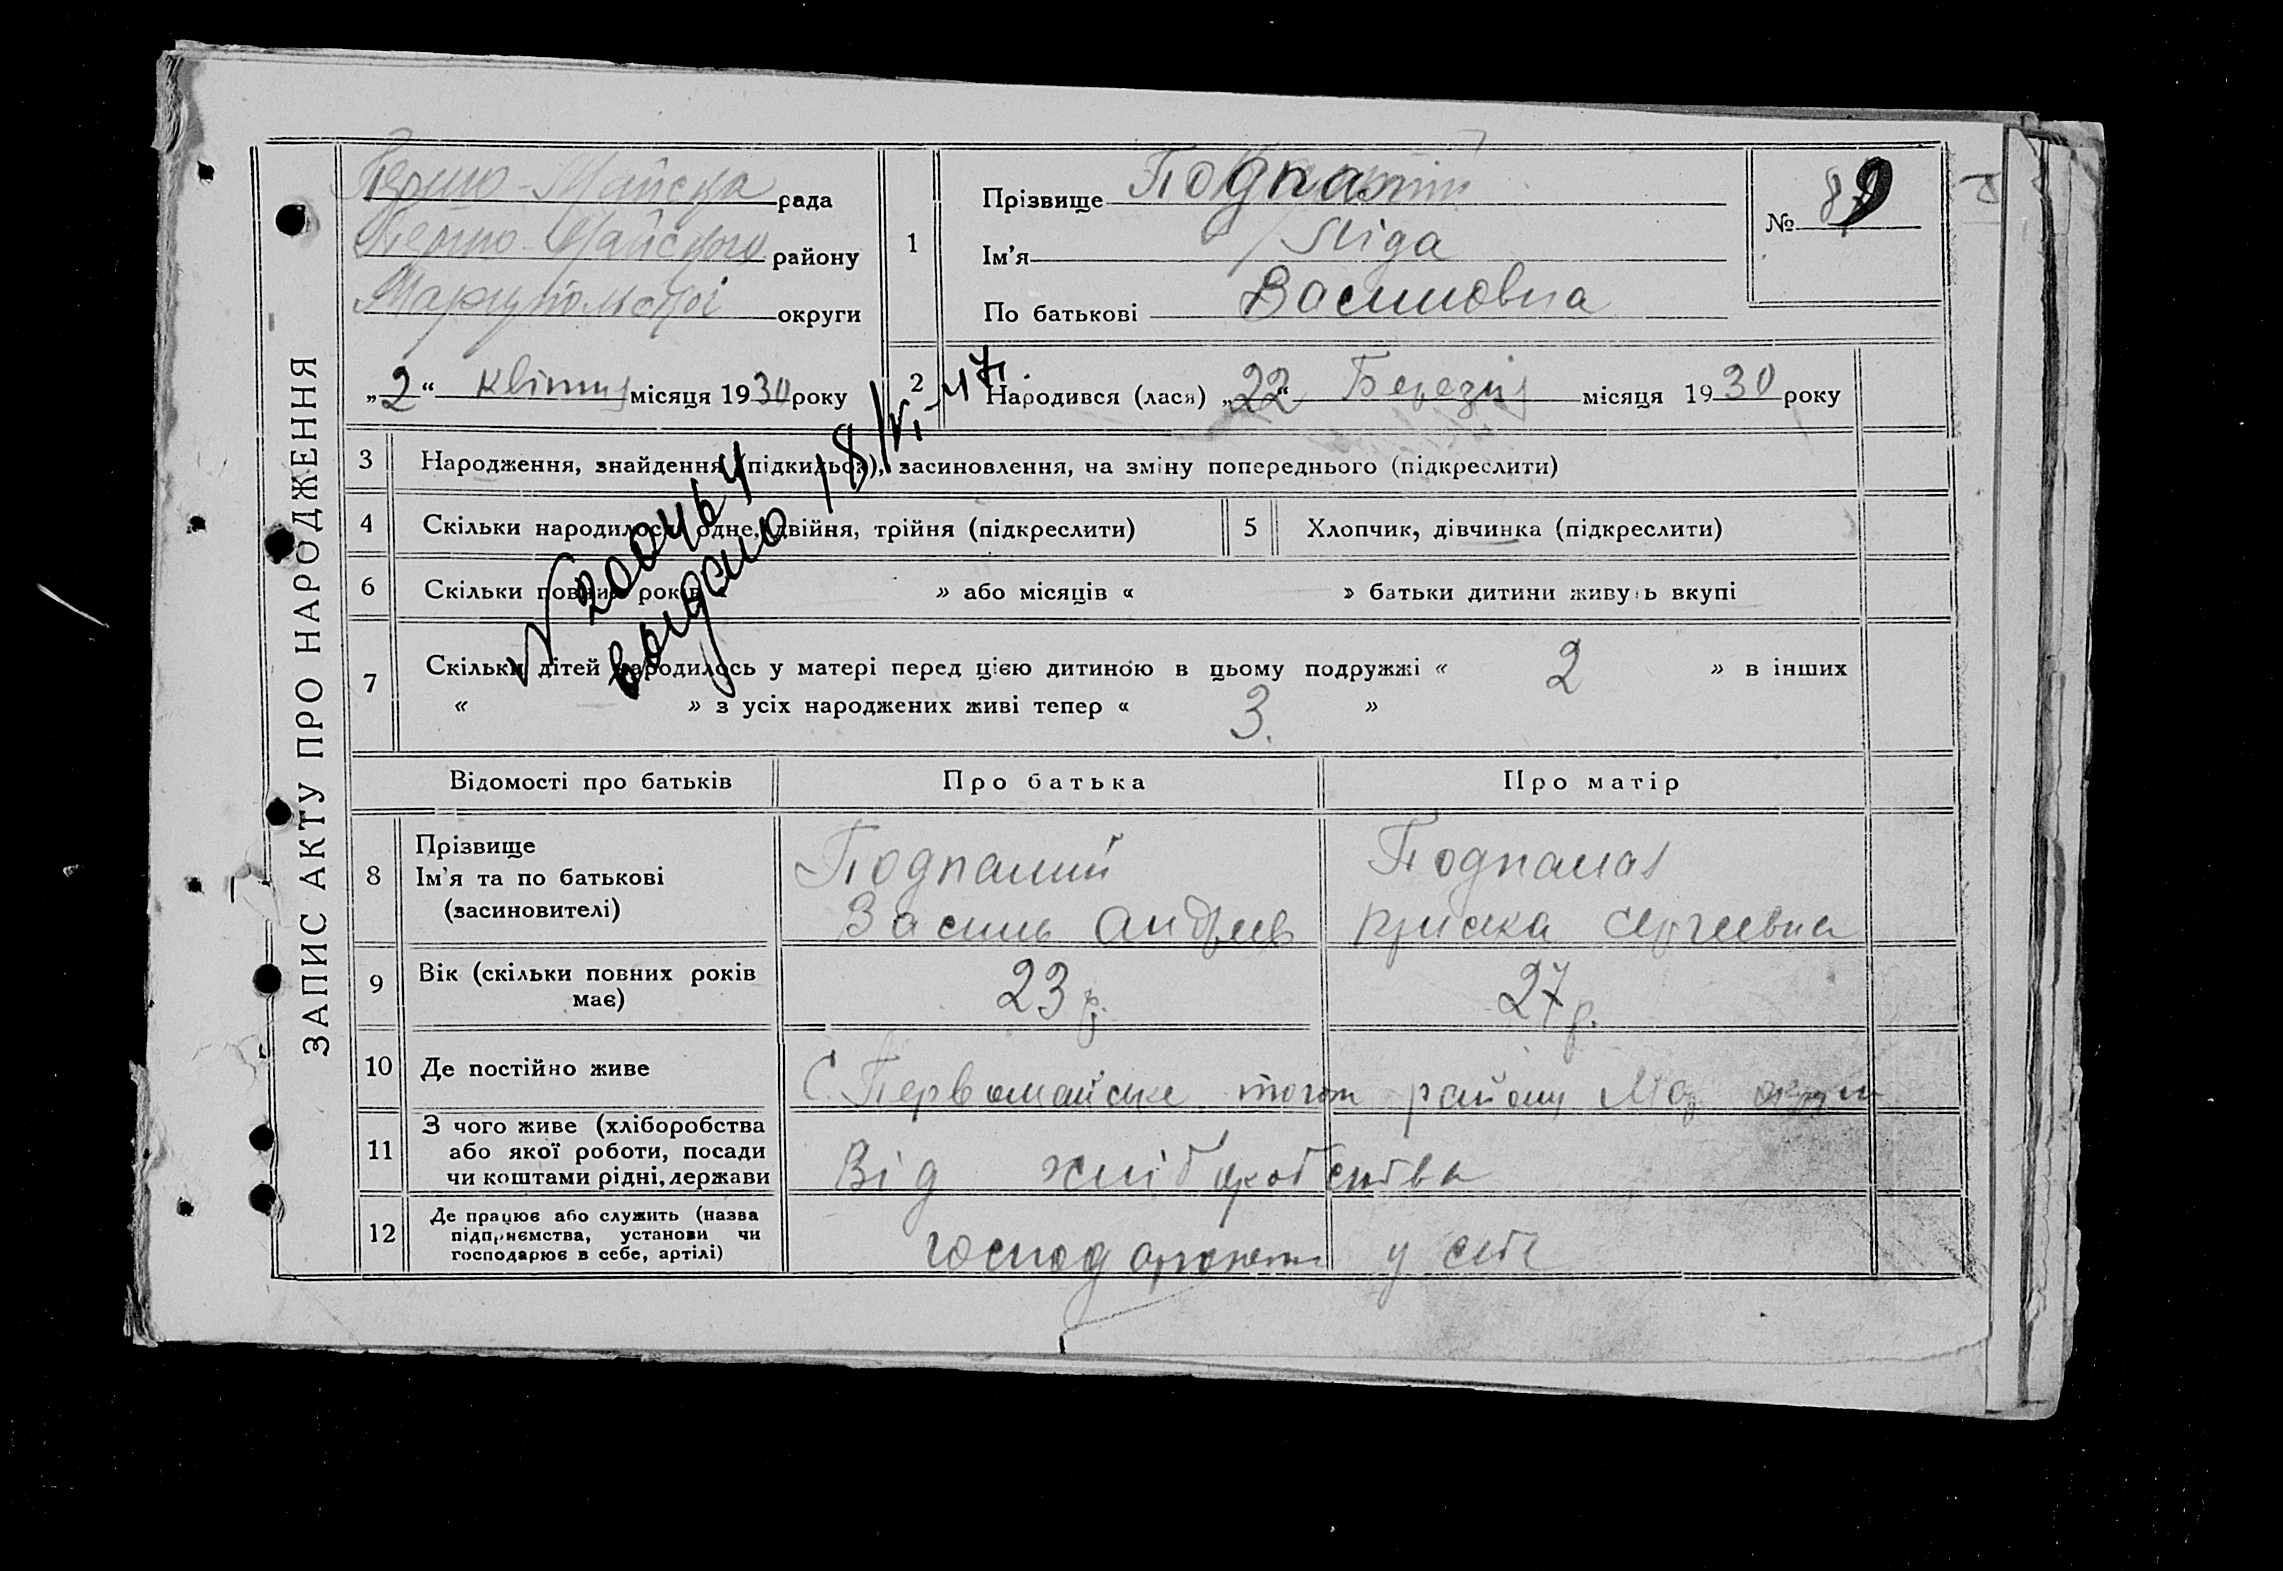 ЗАПИС АКТУ ПРО НАРОДЖЕННЯ
Першо-Майська рада
Першо-Майського району
Маріупольської округи
„2“ квітня місяця 1930 року
1
Прізвище Подпалий
Ім’я Ліда
По батькові Василовна
№ 89
2 Народився (лася) „22“ Березня місяця 1930 року
3 Народження, знайдення (підкидьок), засиновлення, на зміну попереднього (підкреслити)
4 Скільки народилося: одне, двійня, трійня (підкреслити)
5 Хлопчик, дівчинка (підкреслити)
6 Скільки повних років « » або місяців « » батьки дитини живуть вкупі
7 Скільки дітей народилось у матері перед цією дитиною в цьому подружжі « 2 » в інших
« » з усіх народжених живі тепер « 3. »
выдано 18/VI-47.
Відомості про батьків Про батька Про матір
8 Прізвище
Ім’я та по батькові
(засиновителі)
Подпалий
Василь Андреев
Подпалая
Сергеевна
9 Вік (скільки повних років
має)
23 р.
27 р.
10 Де постійно живе
С. Первомайське того ж району Мар округи
11 З чого живе (хліборобства
або якої роботи, посади
чи коштами рідні, держави
Від хліборобства
12 Де працює або служить (назва
підприємства, установи чи
господарює в себе, артілі)
господарюють у себе